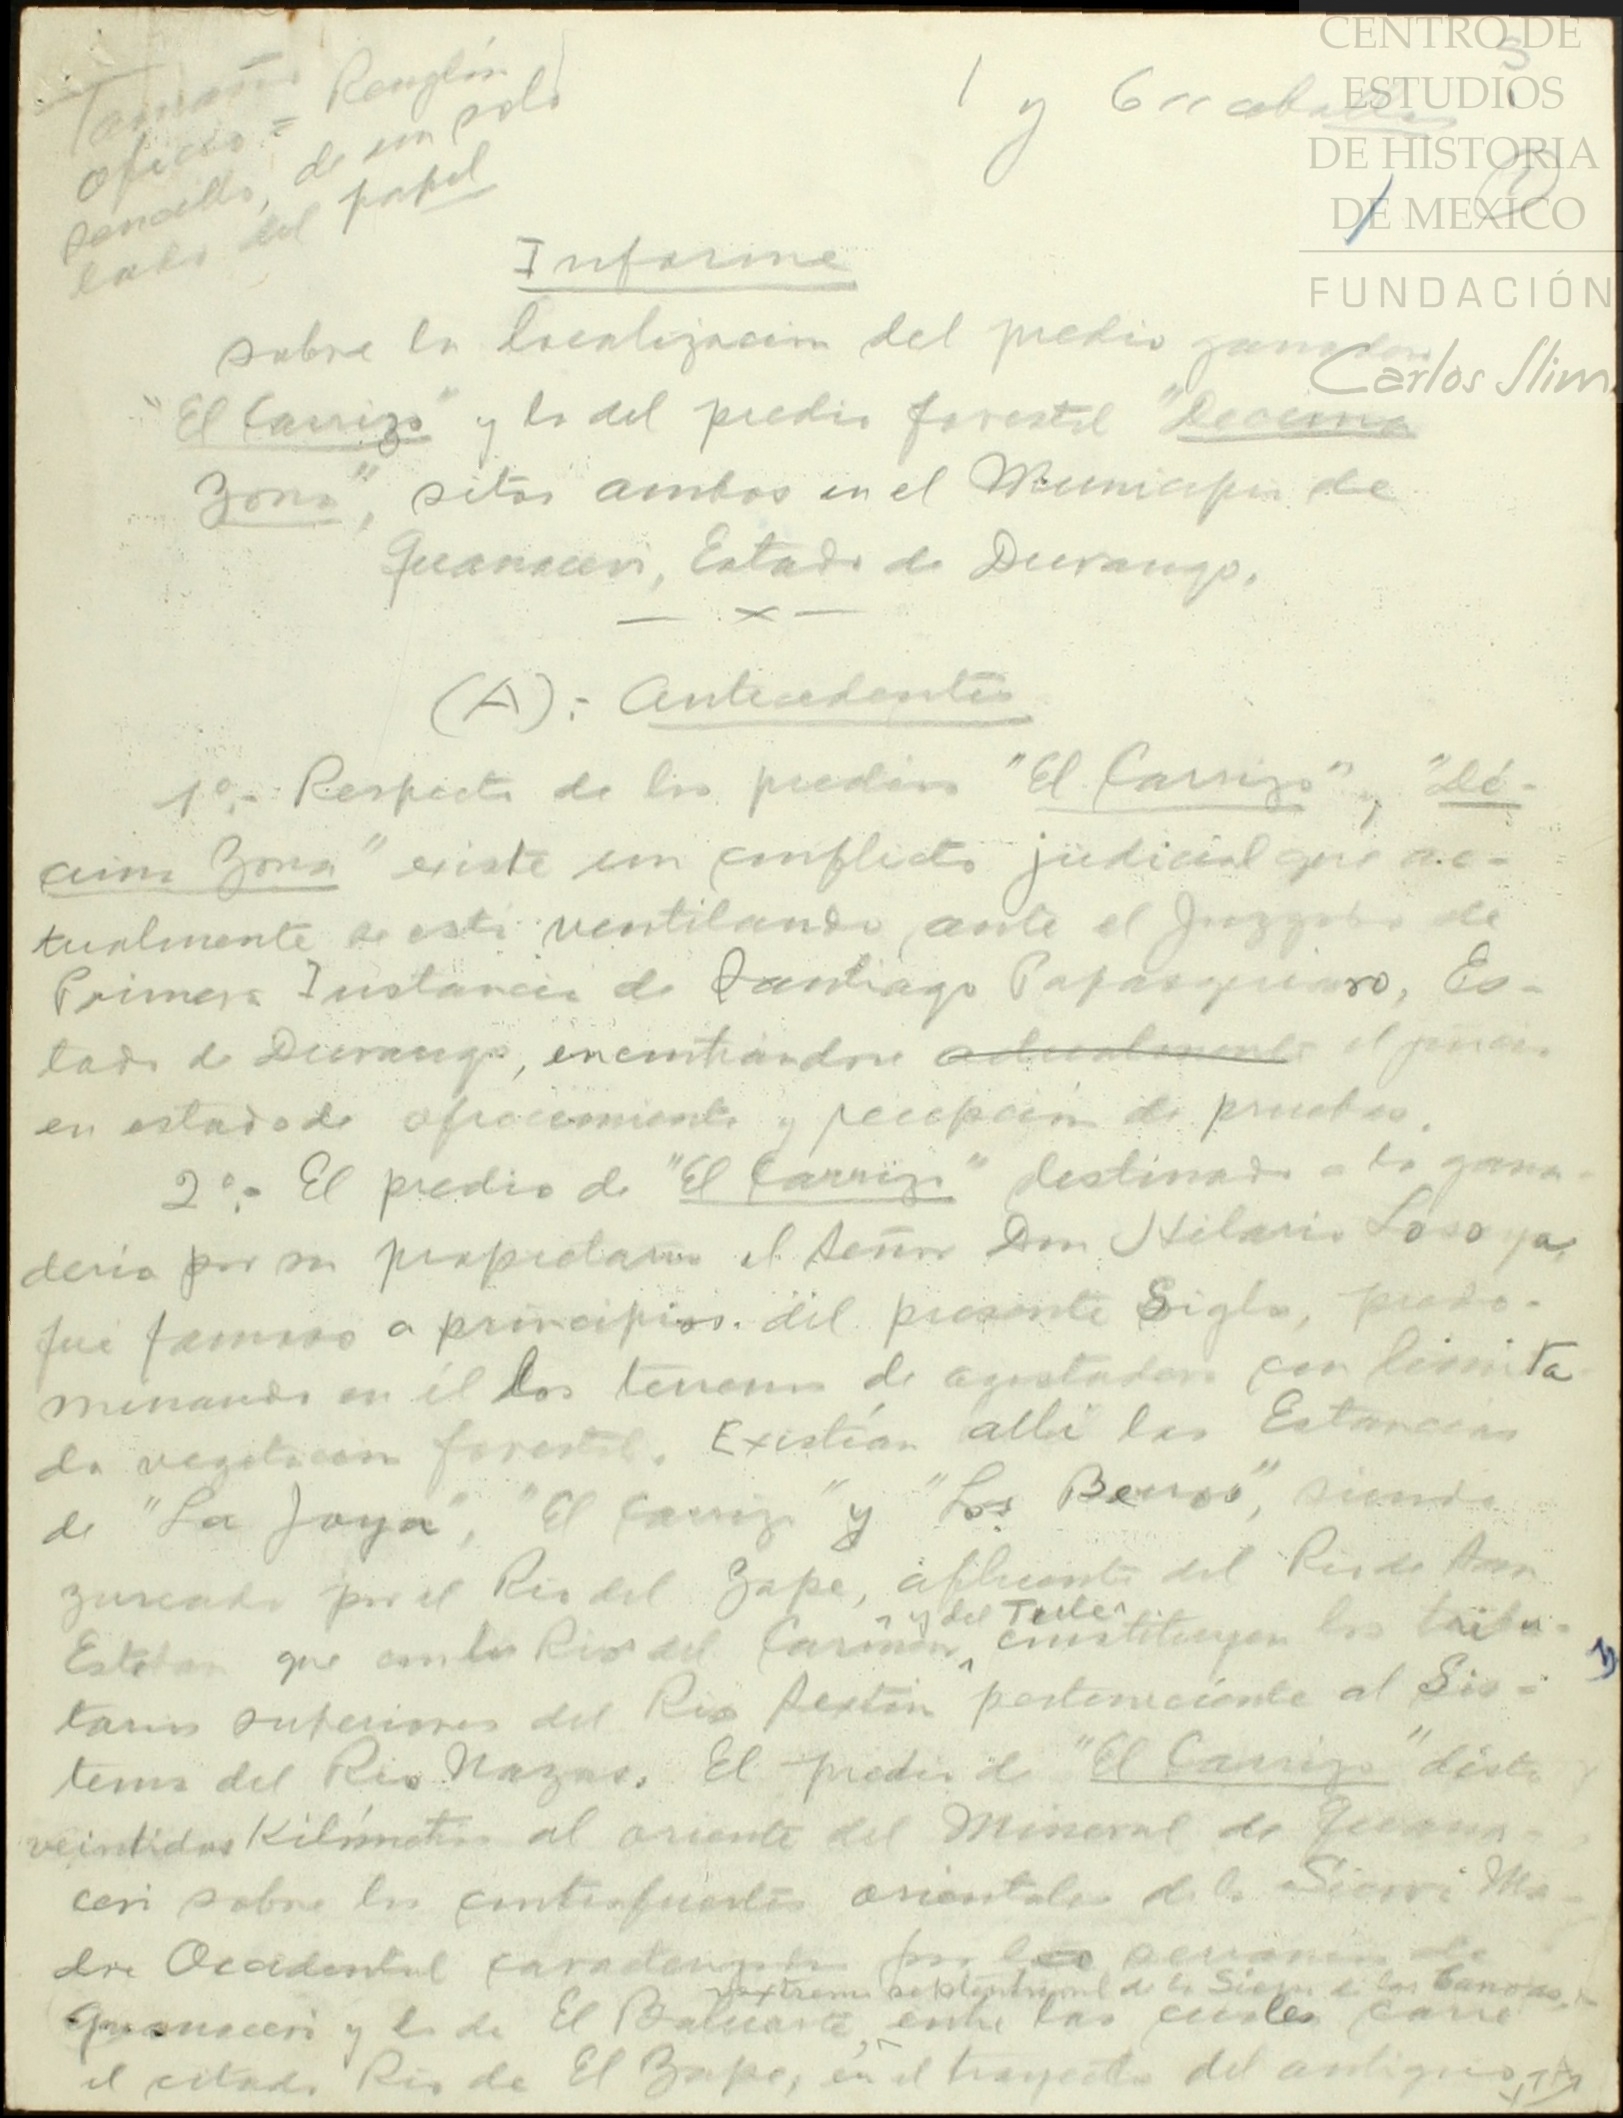 Tamaño
oficio = Renglón
sencillo, de un solo
lado del papel
1 y 6
CENTRO DE
ESTUDIOS
DE HISTORIA
DE MEXICO
FUNDACIÓN
Carlos Slim
Informe
sobre la localizacion del predio ganadero
"El Carrizo" y la del predio forestal "Decima
Zona", sitos ambos en el Municipio de
Guanacevi, Estado de Durango.
— x —
(A):- Antecedentes
1º.- Respecto de los predios "El Carrizo" y "Dé-
cima Zona" existe un conflicto judicial que ac-
tualmente se está ventilando ante el Juzgado de
Primera Instancia de Santiago Papasquiaro, Es-
tado de Durango, encontrándose actualmente el juicio
en estado de ofrecimiento y recepción de pruebas.
2º.- El predio de "El Carrizo" destinado a la gana-
deria por su propietario el señor Don Hilario Lozoya,
fué famoso a principios del presente Siglo, predo-
minando en él los terrenos de agostadero con limita-
da vegetacion forestal. Existían allí las Estancias
de "La Joya", "El Carrizo" y "Los Berros", siendo
zurcado por el Rio del Zape, afluente del Rio de San
Esteban que con los Rios del Carmen, y del Tule constituyen los tribu-
tarios superiores del Rio Sextin perteneciente al Sis-
tema del Rio Nazas. El predio de "El Carrizo" dista
veintidos Kilómetros al oriente del Mineral de Guana-
cevi sobre los contrafuertes orientales de la Sierra Ma-
dre Occidental por las serranias de
Guanacevi y la de El Baluarte, extremo septentrional de la Sierra de las Canoas, entre las cuales corre
el citado Rio de El Zape, en el trayecto del antiguo